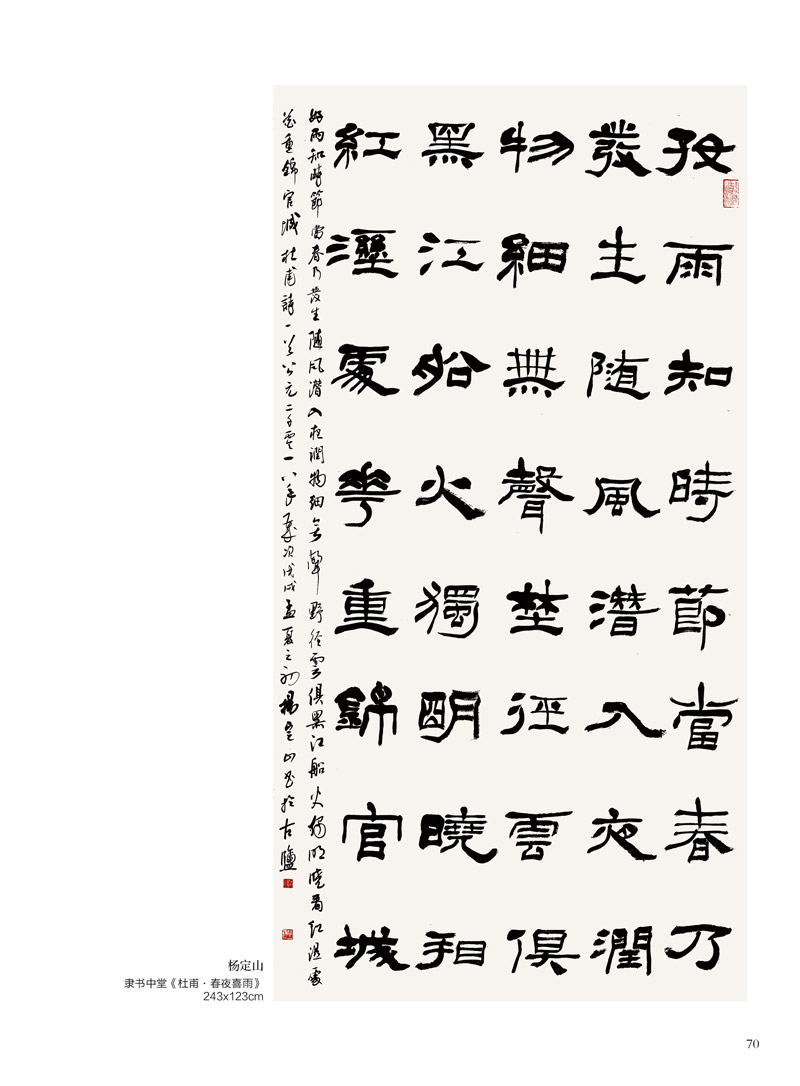 好雨知時節當春乃
發生随風潛入夜潤
物細無聲埜徑雲俱
黑江船火獨明曉看
紅溼處花重錦官城
好雨知時節當春乃發生随風潜入夜潤物细無聲野徑雲俱黑江船火獨明曉看紅溼處
花重錦官城杜甫詩一首公元二千零一八年歲次戊戌孟夏之初楊定山書於古鹽
杨定山
隶书中堂《杜甫·春夜喜雨》
243x123cm
70